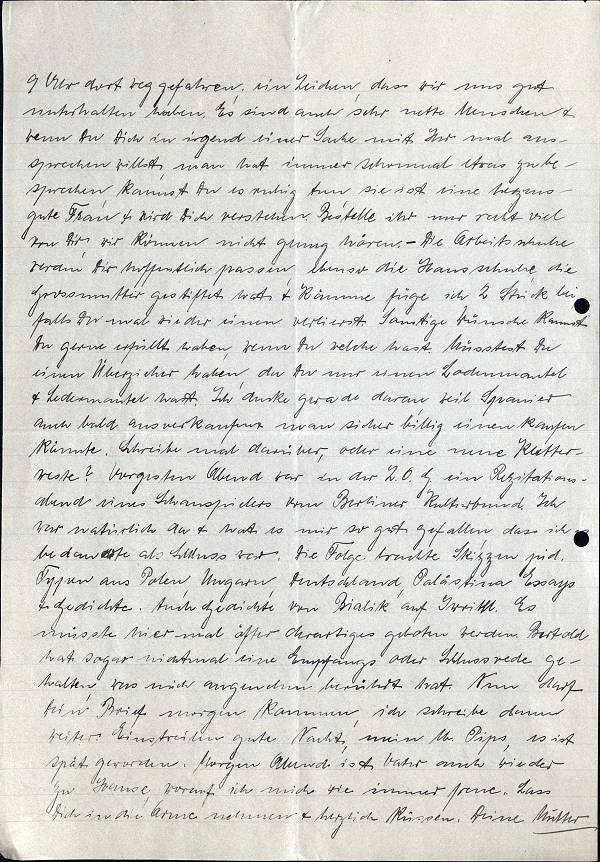 9 Uhr dort weggefahren, ein Zeichen, dass wir uns gut
unterhalten haben. Es sind auch sehr nette Menschen &
wenn Du Dich in irgend einer Sache mit Ihr mal aus-
sprechen willst, man hat immer schonmal etwas zu be-
sprechen kannst Du es ruhig tun sie ist eine herzens-
gute Frau & wird Dich verstehen. Bestelle ihr nur recht viel
von Dir, wir können nicht genug hören. – Die Arbeitsschuhe
werden Dir hoffentlich passen, ebenso die Hausschuhe, die
Grossmutter gestiftet hat & Kämme füge ich 2 Stück bei
falls Du mal wieder einen verlierst. Sonstige Wünsche kannst
Du gerne erfüllt haben, wenn Du welche hast. Müsstest Du
einen Überzieher haben, da Du nur einen Lodenmantel
& Ledermantel hast. Ich denke gerade daran weil Spanier
auch bald ausverkaufen man sicher billig einen kaufen
könnte. Schreibe mal darüber, oder eine neue Kletter-
weste? Vorgestern Abend war in der Z.O.G. ein Rezitations-
abend eines Schauspielers vom Berliner Kulturbund. Ich
war natürlich da & hat es mir so gut gefallen dass ich
bedauerte als Schluss war. Die Folge brachte Skizzen jüd.
Typen aus Polen, Ungarn, Deutschland, Palästina Essays
& Gedichte. Auch Gedichte von Bialik auf Iwrith. Es
müsste hier mal öfter derartiges geboten werden. Bertold
hat sogar nichtmal eine Empfangs oder Schlussrede ge-
halten, was mich angenehm berührt hat. Nun darf
kein Brief morgen kommen, ich schreibe dann
weiter. Einstweilen gute Nacht, mein lb. Pips, es ist
spät geworden. Morgen Abend ist Vater auch wieder
zu Hause, worauf ich mich wie immer freue. Lass
Dich in die Arme nehmen & herzlich küssen. Deine Mutter